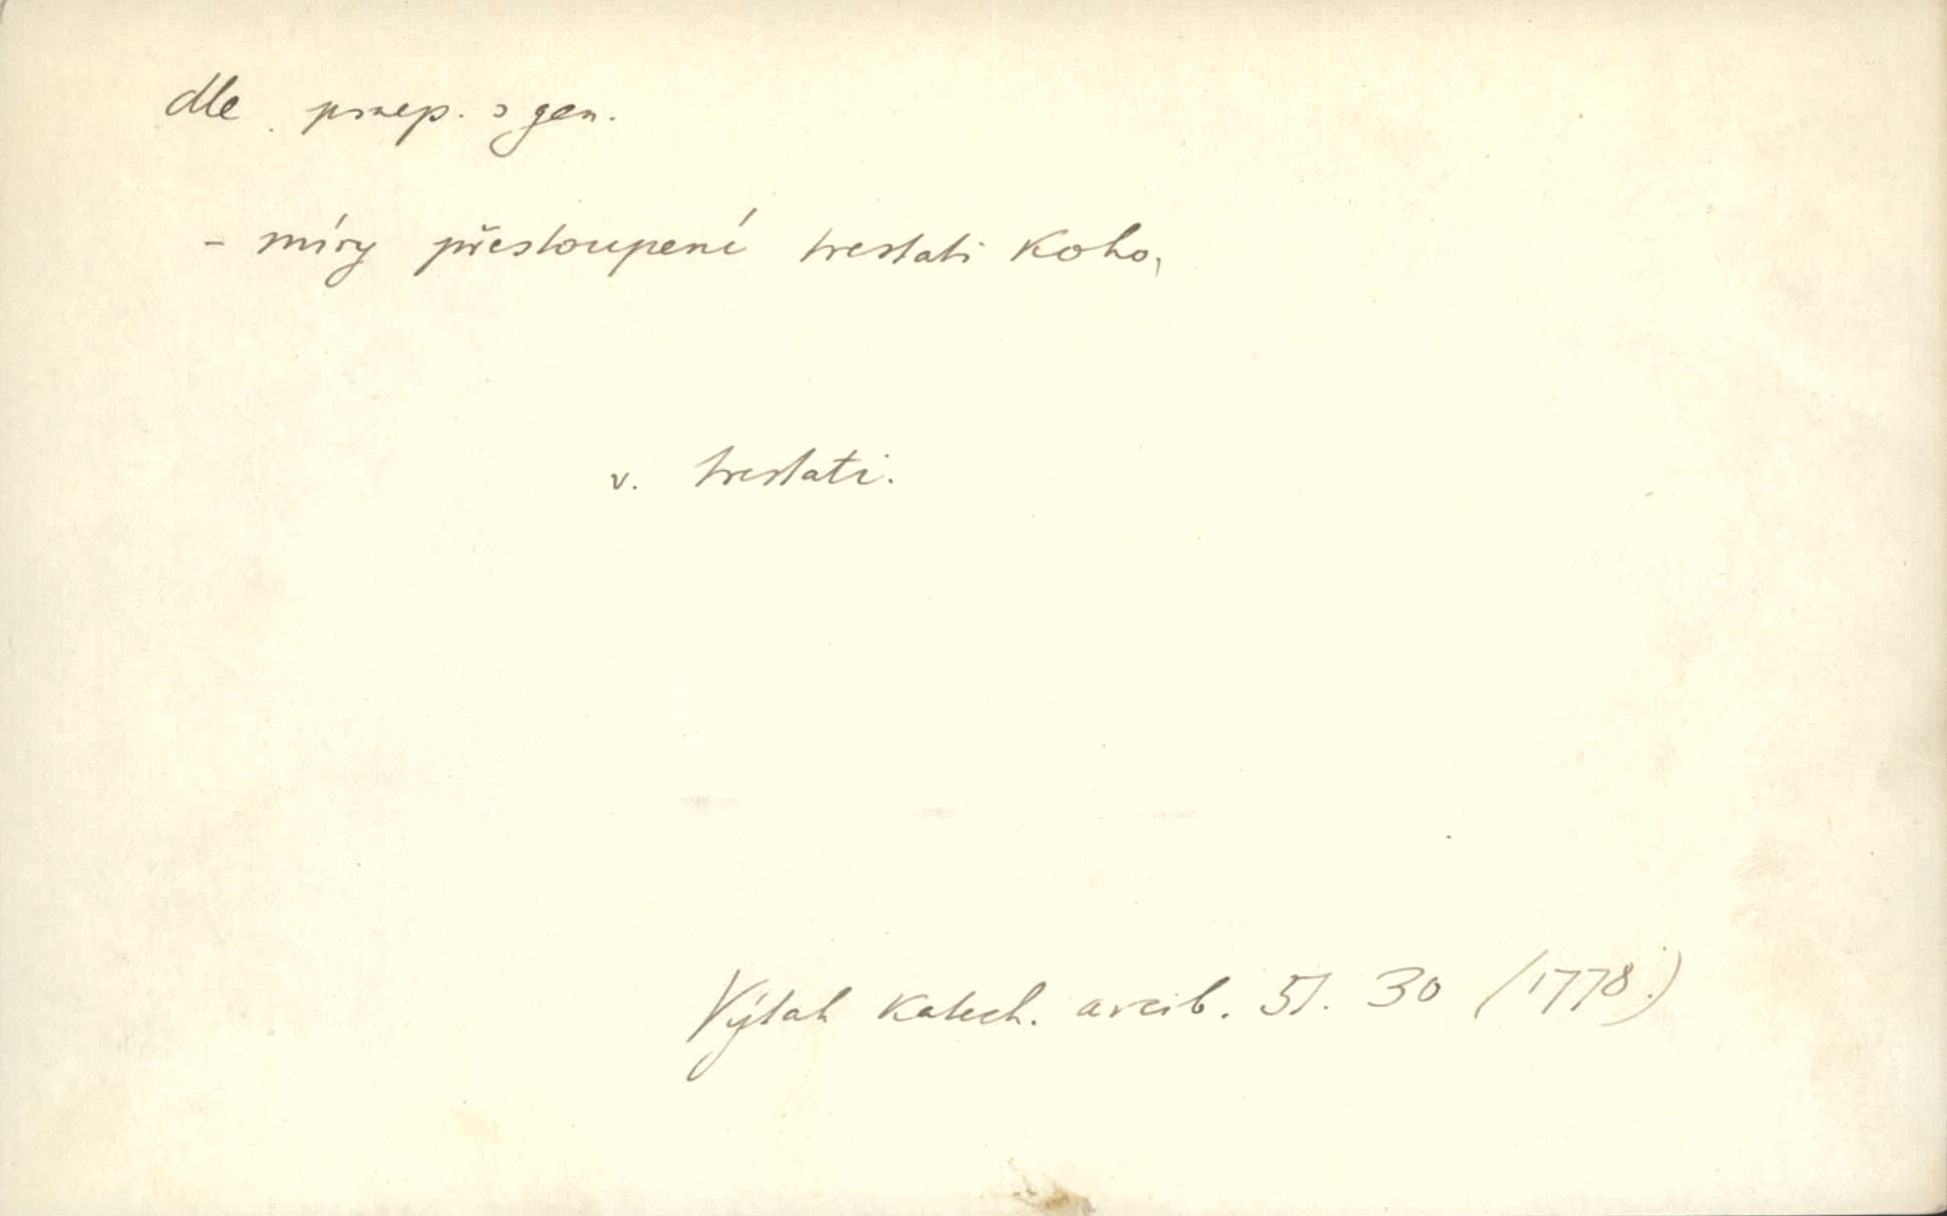 dle praep. s gen.
- míry přestoupení trestati koho,
v. trestati.
Výtah katech. arcib. 51. 30 (1778.)